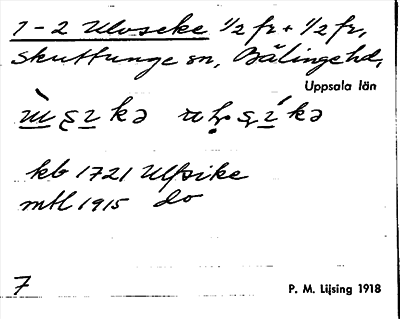 1-2 Uloseke 1/2 fr + 1/2 fr,
Skuttunge sn, Bälinge hd,
Uppsala län
kb 1721 Ulfsike
mtl 1915 do
7 P. M. Lijsing 1918